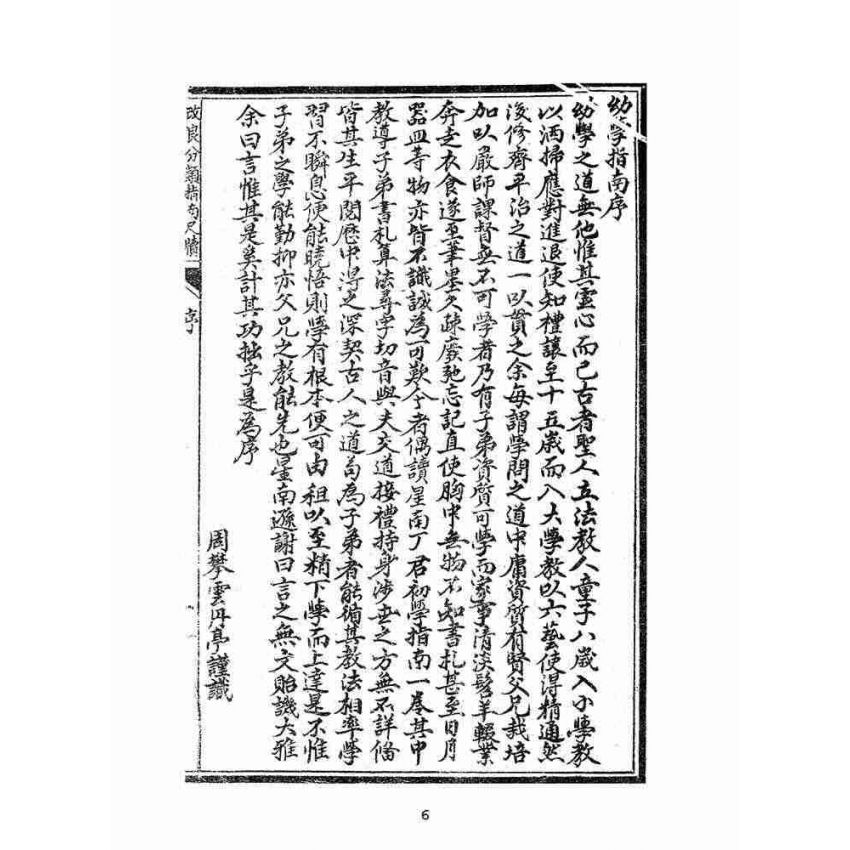 幼學指南序
幼學之道無他惟其靈心而已古者聖人立法教人童子八歲入小學教
以洒掃應對進退使知禮讓至十五歲而入大學教以六藝使得精通然
後修齊平治之道一以貫之余每謂學問之道中庸資質有賢父兄栽培
加以嚴師課督無不可學者乃有子弟資質可學而家事清淡髫年輟業
奔走衣食遂至筆墨久疎廢弛忘記直使胸中無物不知書札甚至日月
器皿等物亦皆不識誠為可歎今者偶讀星南丁君初學指南一卷其中
教導子弟書札算法尋字切音與夫交道接禮持身涉世之方無不詳俻
皆其生平閱歷中得之深契古人之道苟為子弟者能循其教法相率學
習不瞬息便能曉悟則學有根本便可由粗以至精下學而上達是不惟
子弟之學能勤抑亦父兄之教能先也星南遜謝曰言之無文貽譏大雅
余曰言惟其是奚計其功拙乎是為序
周攀雲丹亭謹識
改良分類指南尺牘
序
6